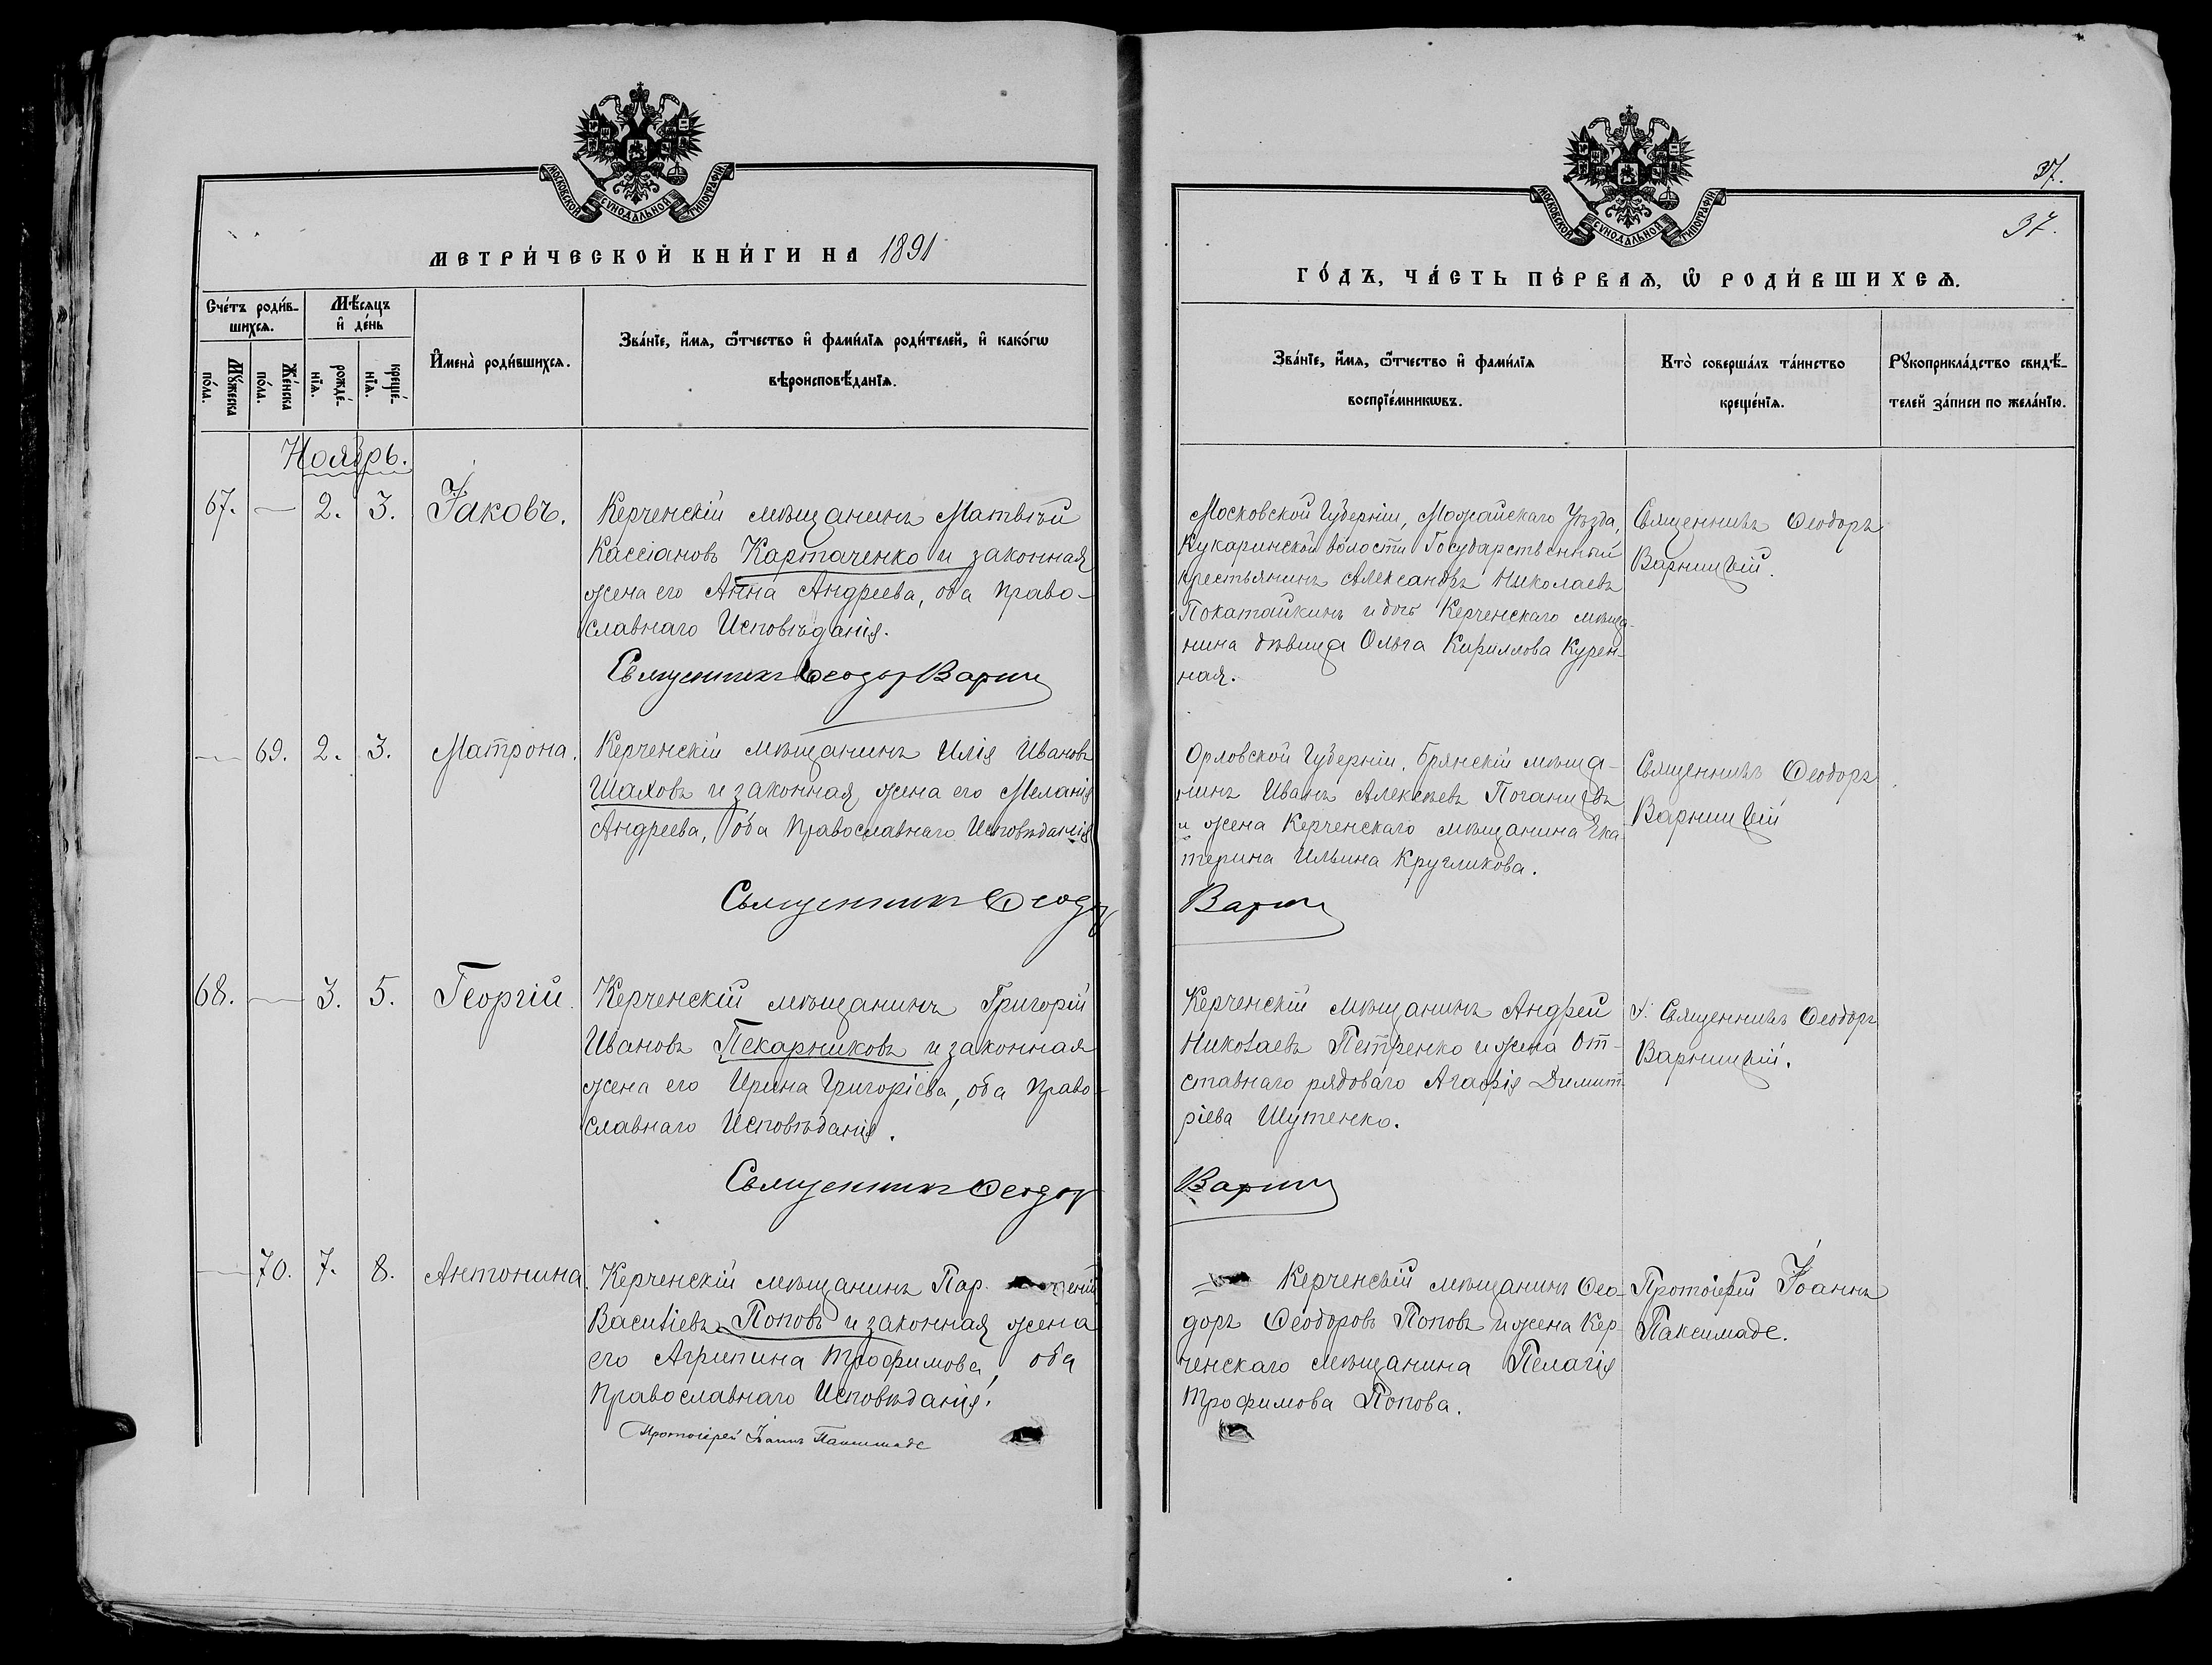 МОСКОВСКОЙ СѴНОДАЛЬНОЙ ТИПОГРАФІИ
МЕТРИ́ЧЕСКОЙ КНИ́ГИ НА 1891
Сче́тъ роди́в-
шихсѧ.
Мѣ́сѧцъ
и҆ де́нь
Мꙋ́жеска
по́ла.
Же́нска
по́ла.
рожде́-
нїѧ.
креще́-
нїѧ.
И҆мена̀ роди́вшихсѧ.
Зва́нїе, и҆́мѧ, ѻ҆́тчество и҆ фами́лїѧ роди́телей, и҆ како́гѡ
вѣроисповѣ́данїѧ.
Ноябрь.
67. — 2. 3. Іаковъ.
Керченскій мѣщанинъ Матвѣй
Кассіановъ Картаченко и законная
жена его Анна Андреева, оба право-
славнаго Исповѣданія.
Священникъ Ѳеодор Варни
— 69. 2. 3. Матрона.
Керченскій мѣщанинъ Илія Ивановъ
Шаховъ и законная жена его Меланія
Андреева, оба Православнаго Исповѣданія
Священникъ Ѳеодор
68. — 3. 5. Георгій.
Керченскій мѣщанинъ Григорій
Ивановъ Пекарниковъ и законная
жена его Ирина Григоріева, оба Право-
славнаго Исповѣданія.
Священникъ Ѳеодор
— 70. 7. 8. Антонина.
Керченскій мѣщанинъ Пар. еній
Василіевъ Поповъ и законная жена
его Агрипина Трофимова, оба
Православнаго Исповѣданія.
Протоіерей Іоаннъ Паксимаде
37.
37.
МОСКОВСКОЙ СѴНОДАЛЬНОЙ ТИПОГРАФІИ
ГО́ДЪ, ЧА́СТЬ ПЕ́РВАѦ, Ѽ РОДИ́ВШИХСѦ.
Зва́нїе, и҆́мѧ, ѻ҆́тчество и҆ фами́лїѧ
воспрїе́мникѡвъ.
Кто̀ соверша́лъ та́инство
креще́нїѧ.
Рꙋкоприкла́дство свидѣ́-
телей за́писи по жела́нїю.
Московской Губерніи, Можайскаго Уѣзда,
Кукаринской волости Государственный
крестьянинъ Александръ Николаевъ
Покаташкинъ и дочь Керченскаго мѣща-
нина дѣвица Ольга Кириллова Курен-
ная.
Священникъ Ѳеодоръ
Варницкій.
Орловской Губерніи, Брянскій мѣща-
нинъ Иванъ Алексѣевъ Поганцевъ
и жена Керченскаго мѣщанина Ека-
терина Ильина Кругликова.
Варни
Священникъ Ѳеодоръ
Варницкій
Керченскій мѣщанинъ Андрей
Николаевъ Петренко и жена От-
ставнаго рядоваго Агафія Димит-
ріева Шутенко.
Варни
Священникъ Ѳеодоръ
Варницкій.
Керченскій мѣщанинъ Ѳео-
доръ Ѳеодоровъ Поповъ и жена Кер-
ченскаго мѣщанина Пелагія
Трофимова Попова.
Протоіерей Іоаннъ
Паксимаде.